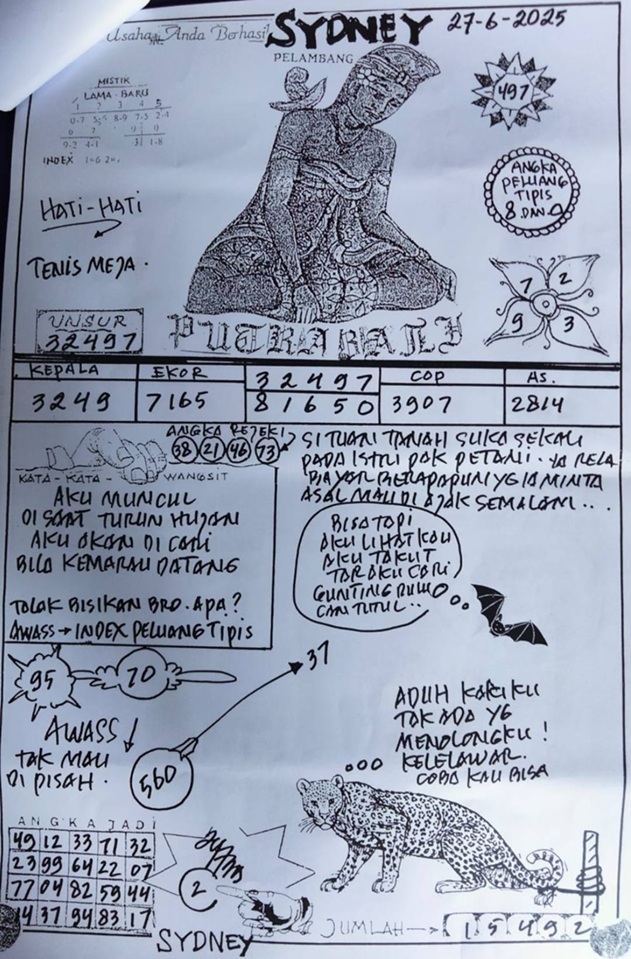 Usaha Anda Berhasil
SYDNEY
27-6-2025
PELAMBANG
MISTIK
LAMA - BARU
1 2 3 4 5
0-7 8-9 7-3 2-4
6 7 9 0
9-2 4-1 31 1-8
INDEX 1=6 2=
497
ANGKA
PELUANG
TIPIS
8 DAN 4
HATI-HATI
TENIS MEJA.
7 2
9 3
UNSUR
32497
PUTRA BALI
KEPALA
3249
EKOR
7165
32497
81650
COP
3907
AS.
2814
ANGKA REJEKI
38 21 46 73
KATA - KATA - WANGSIT
AKU MUNCUL
DI SAAT TURUN HUJAN
AKU AKAN DI CARI
BILA KEMARAU DATANG
TOLAK BISIKAN BRO. APA?
AWASS → INDEX PELUANG TIPIS
SI TUAN TANAH SUKA SEKALI
PADA ISTRI PAK PETANI. IA RELA
BAYAR BERAPAPUN YG IA MINTA
ASAL MAU DI AJAK SEMALAM...
BISA TAPI
AKU LIHAT KAU
AKU TAKUT
TAR AKU CARI
GUNTING DULU
CAN TUTUL..
95
70
37
AWASS
TAK MAU
DI PISAH.
560
ADUH KAKIKU
TAK ADA YG
MENOLONGKU!
KELELAWAR.
COBA KAU BISA
ANGKA JADI
49 12 33 71 32
23 99 64 22 07
77 04 82 59 44
14 37 94 83 17
2
SYDNEY
JUMLAH → 15492